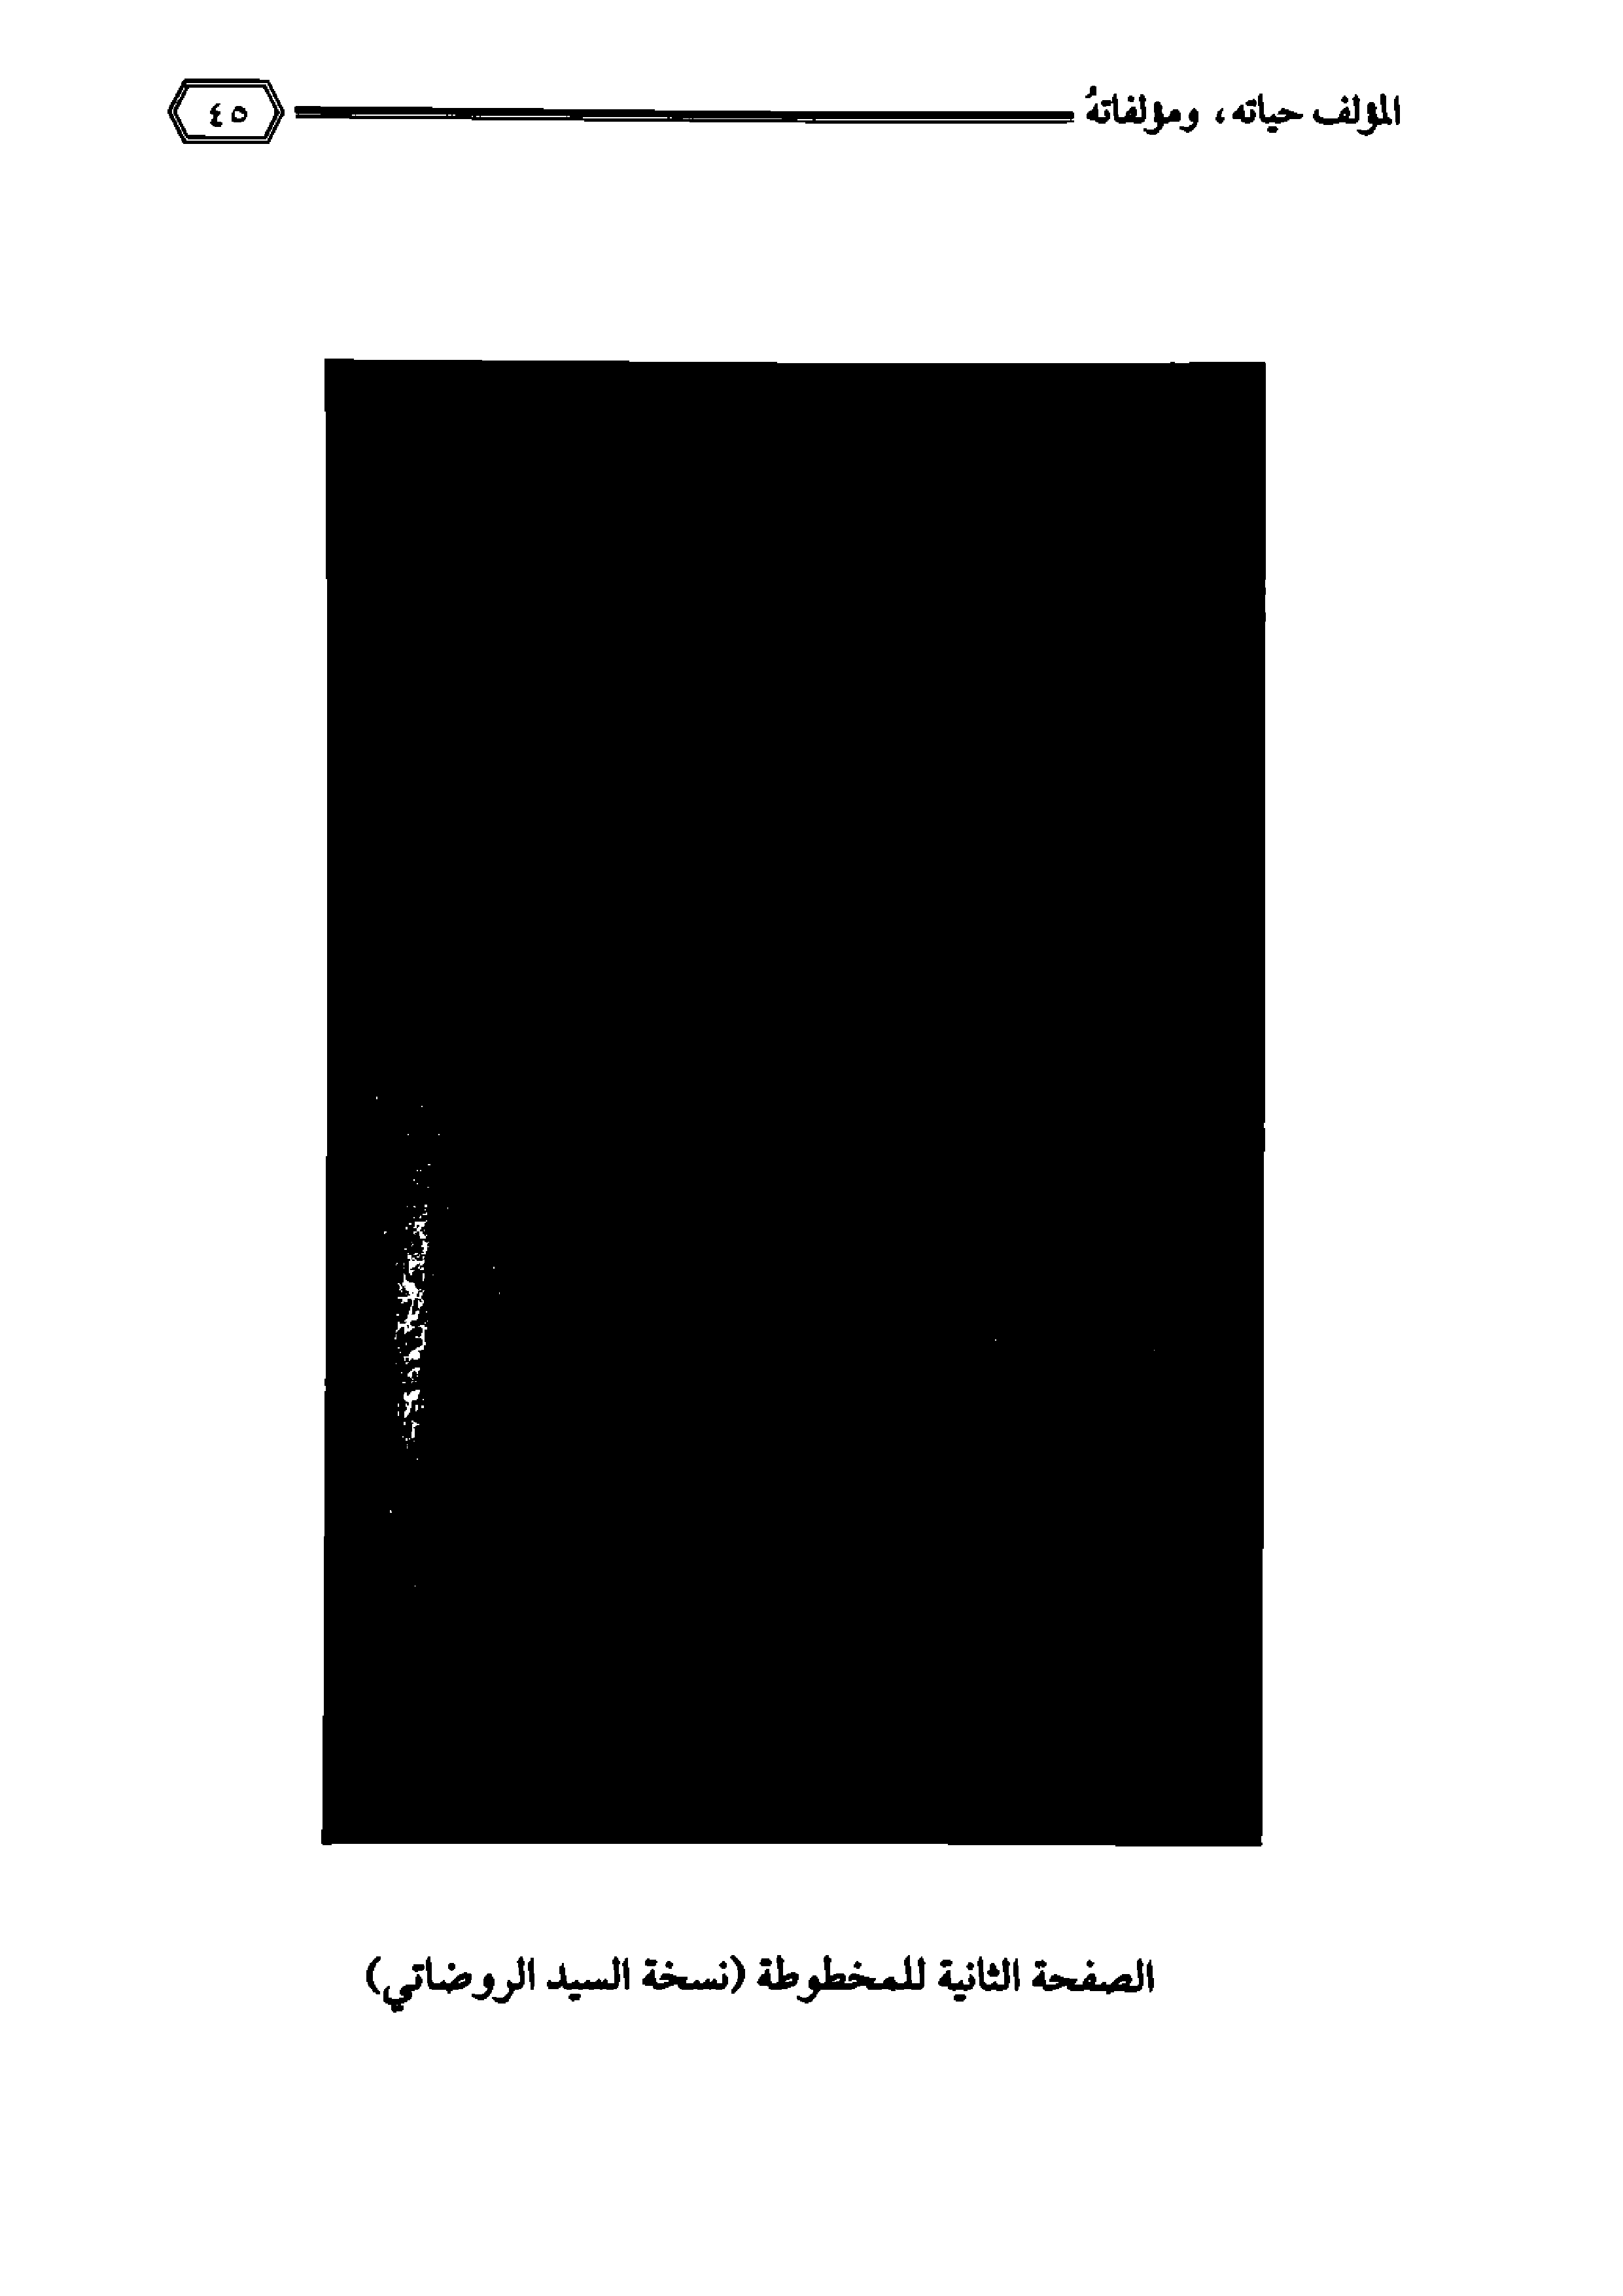 المؤلف حياته، ومؤلفاتهُ
٤٥
الصفحة الثانية للمخطوطة (نسخة السيد الروضاتي)